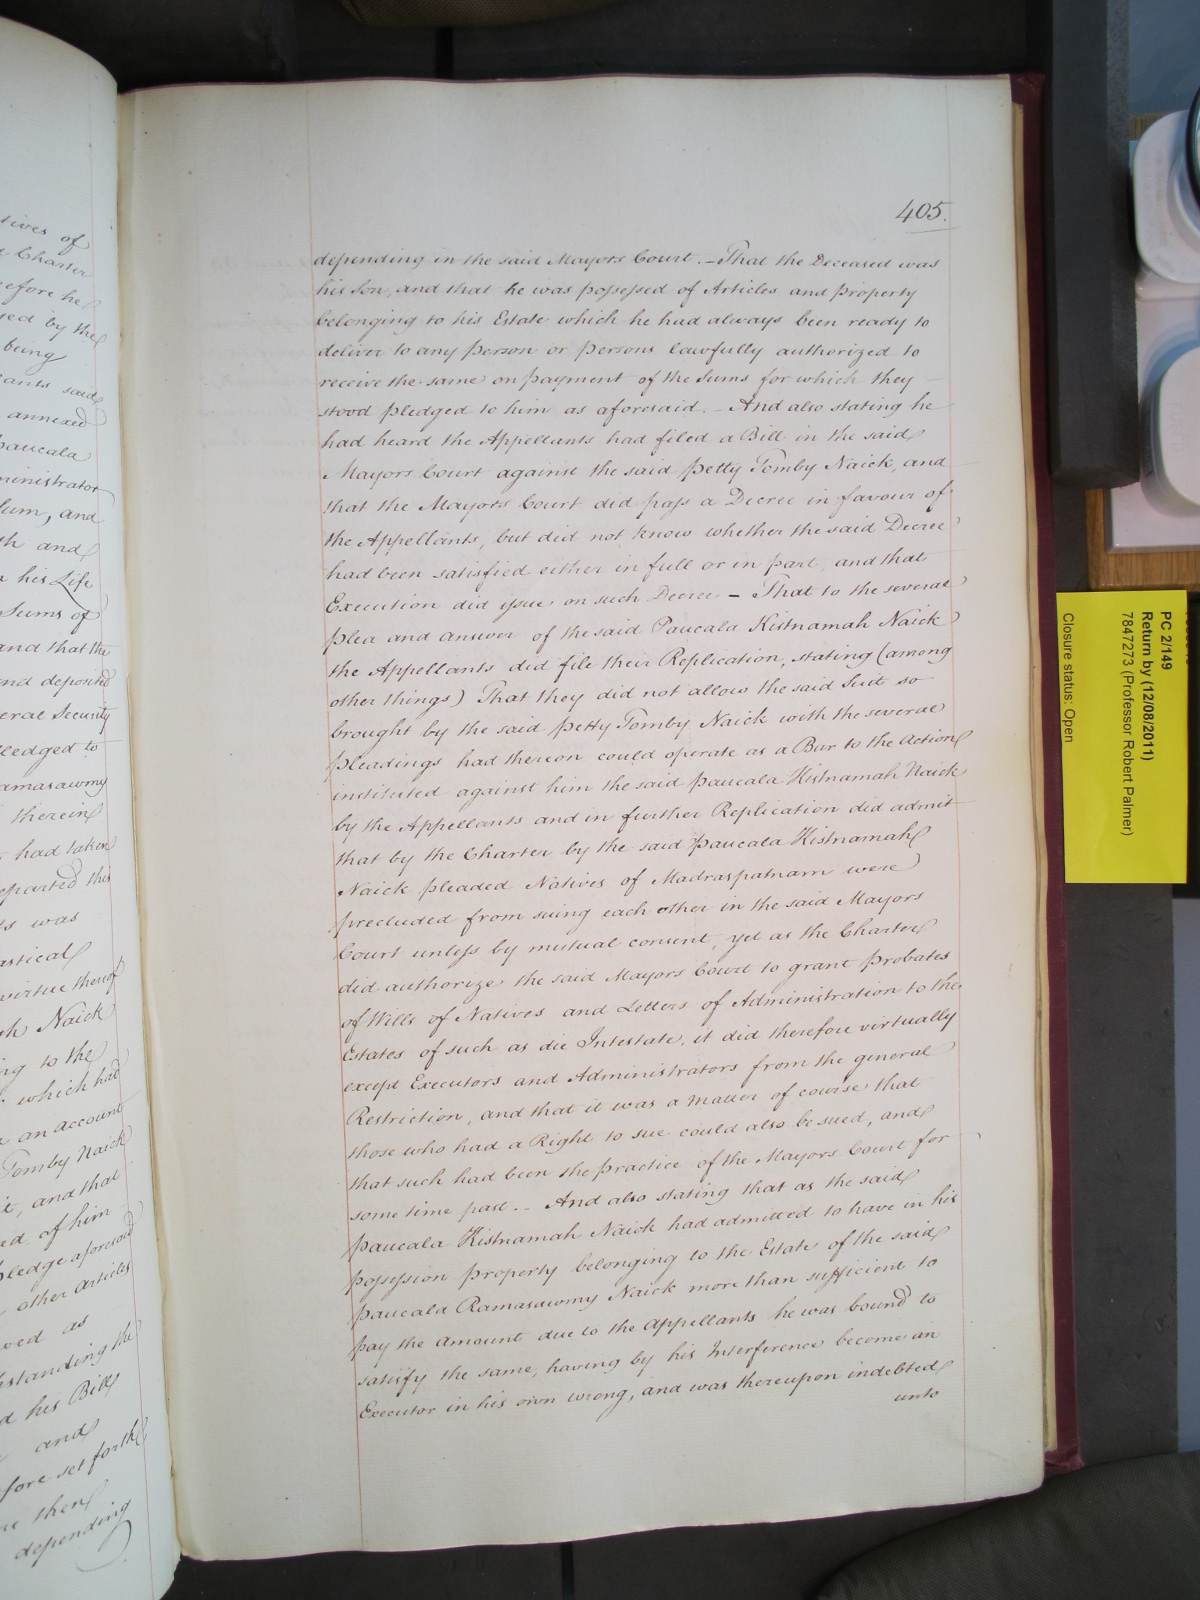 tives of
Charter
efore he
sed by the
being
cants said
annexed
paucala
ministrator
sum, and
th and
his Life
Sums of
and that the
nd deposited
eral Security
pledged to
amasawmy
therein
had taken
eparted this
ts was
astical
virtue thereof
ah Naick
ng to the
which had
an account
Tomby Naick
it, and that
ed of him
pledge aforesaid
other articles
ved as
hstanding the
d his Bill
and
fore set forth
re then
depending
405.
depending in the said Mayors Court. - That the Deceased was
his Son, and that he was possessed of Articles and Property
belonging to his Estate which he had always been ready to
deliver to any Person or Persons lawfully authorized to
receive the same on payment of the Sums for which they
stood pledged to him as aforesaid. - And also stating he
had heard the Appellants had filed a Bill in the said
Mayors Court against the said Petty Tomby Naick, and
that the Mayors Court did pass a Decree in favour of
the Appellants, but did not know whether the said Decree
had been satisfied either in full or in part, and that
Execution did issue on such Decree - That to the several
plea and answer of the said Paucala Kistnamah Naick
the Appellants did file their Replication, stating (among
other things) That they did not allow the said Suit so
brought by the said Petty Tomby Naick with the several
pleadings had thereon could operate as a Bar to the Action
instituted against him the said Paucala Kistnamah Naick
by the Appellants and in further Replication did admit
that by the Charter by the said Paucala Kistnamah
Naick pleaded Natives of Madraspatnam were
precluded from suing each other in the said Mayors
Court unless by mutual consent, yet as the Charter
did authorize the said Mayors Court to grant Probates
of Wills of Natives and Letters of Administration to the
Estates of such as die Intestate, it did therefore virtually
except Executors and Administrators from the general
Restriction, and that it was a matter of course that
those who had a Right to sue could also be sued, and
that such had been the practice of the Mayors Court for
some time past. - And also stating that as the said
Paucala Kistnamah Naick had admitted to have in his
possession property belonging to the Estate of the said
Paucala Ramasawmy Naick more than sufficient to
pay the amount due to the Appellants he was bound to
satisfy the same, having by his Interference become an
Executor in his own wrong, and was thereupon indebted
unto
PC 2/149
Return by (12/08/2011)
7847273 (Professor Robert Palmer)
Closure status: Open